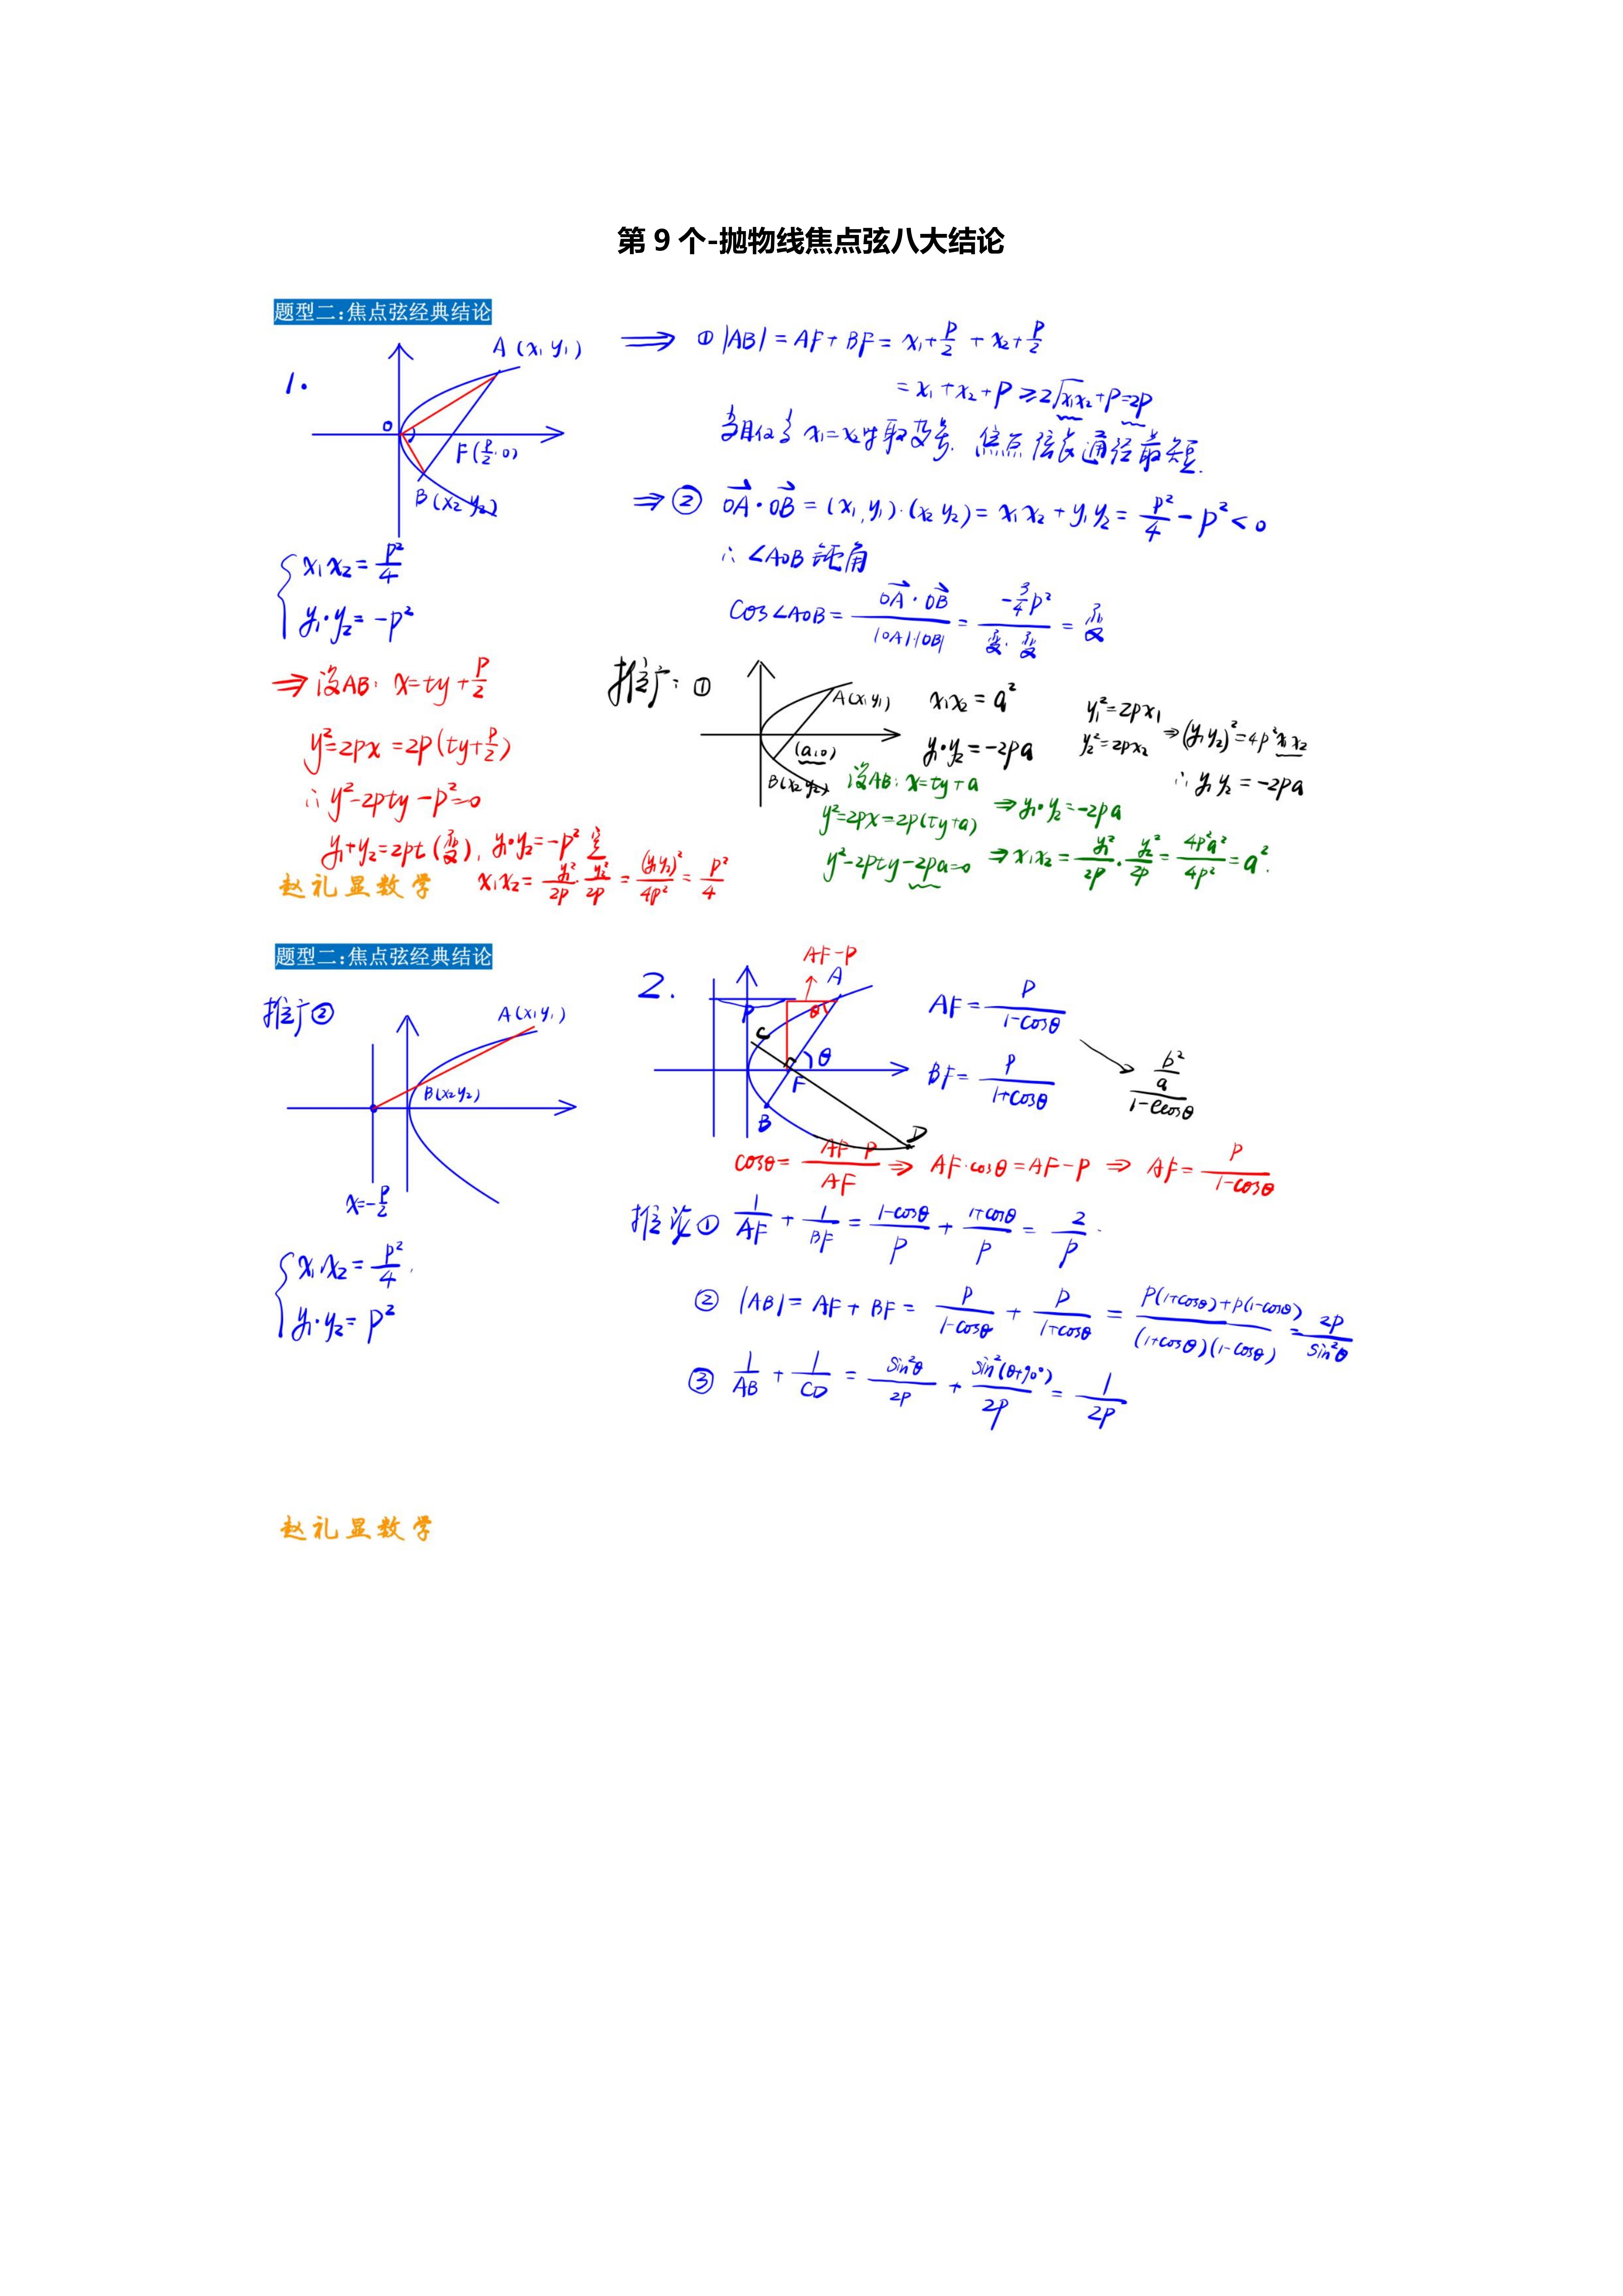 第 9 个-抛物线焦点弦八大结论
题型二:焦点弦经典结论
1.
A (x₁ y₁)
O
F(p/2·0)
B(x₂ y₂)
{ x₁x₂ = p²/4
y₁·y₂ = -p²
⇒ 设AB: x=ty+p/2
y²=2px=2p(ty+p/2)
∴ y²-2pty-p²=0
y₁+y₂=2pt(变), y₁·y₂=-p² 定
x₁x₂ = y₁²/2p · y₂²/2p = (y₁y₂)²/4p² = p²/4
赵礼显数学
⇒ ① |AB| = AF+BF = x₁+p/2 + x₂+p/2
= x₁+x₂+p ≥ 2√x₁x₂+p=2p
当且仅当 x₁=x₂时取等号. 焦点弦长通径最短.
⇒ ② OA·OB = (x₁,y₁)·(x₂ y₂) = x₁x₂+y₁y₂ = p²/4 - p² < 0
∴ ∠AOB 钝角
cos∠AOB = OA·OB/|OA|·|OB| = -3/4p²/变·变 = 变
推广: ①
A(x₁ y₁)
(a,0)
B(x₂ y₂)
x₁x₂ = a²
y₁·y₂ = -2pa
y₁²=2px₁
y₂²=2px₂ ⇒ (y₁y₂)²=4p²x₁x₂
∴ y₁y₂ = -2pa
设AB: x=ty+a
y²=2px=2p(ty+a) ⇒ y₁·y₂=-2pa
y²-2pty-2pa=0 ⇒ x₁x₂ = y₁²/2p · y₂²/2p = 4p²a²/4p² = a².
题型二:焦点弦经典结论
推广②
A(x₁y₁)
B(x₂y₂)
x=-p/2
{ x₁x₂ = p²/4.
y₁·y₂ = p²
2.
AF-p
A
p
θ
C
θ
F
B
D
AF = p/1-cosθ
BF = p/1+cosθ
b²/a/1-ecosθ
cosθ = AF-p/AF ⇒ AF·cosθ=AF-p ⇒ AF = p/1-cosθ
推论① 1/AF + 1/BF = 1-cosθ/p + 1+cosθ/p = 2/p.
② |AB| = AF+BF = p/1-cosθ + p/1+cosθ = p(1+cosθ)+p(1-cosθ)/(1+cosθ)(1-cosθ) = 2p/sin²θ
③ 1/AB + 1/CD = sin²θ/2p + sin²(θ+90°)/2p = 1/2p
赵礼显数学